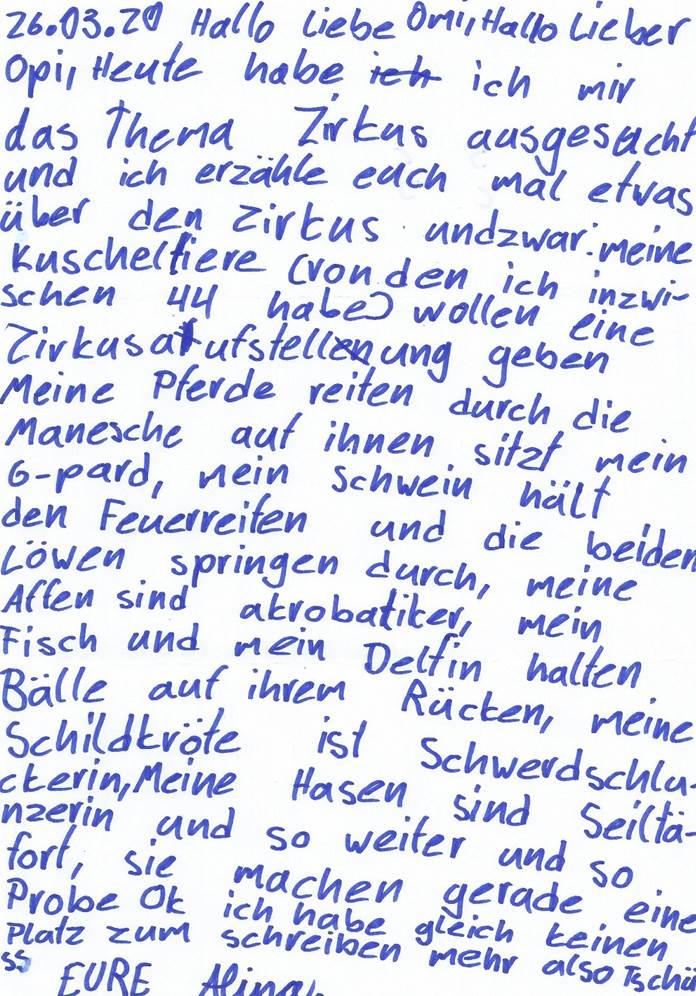 26.03.20 Hallo Liebe Omi, Hallo Lieber
Opi, Heute habe ich ich mir
das Thema Zirkus ausgesucht
und ich erzähle euch mal etwas
über den Zirkus undzwar: meine
Kuscheltiere (von den ich inzwi-
schen 44 habe) wollen eine
Zirkusaufstellenung geben
Meine Pferde reiten durch die
Manesche auf ihnen sitzt mein
G-pard, mein Schwein hält
den Feuerreifen und die beiden
Löwen springen durch, meine
Affen sind akrobatiker, mein
Fisch und mein Delfin halten
Bälle auf ihrem Rücken, meine
Schildkröte ist Schwerdschlu-
ckerin, Meine Hasen sind Seiltä-
nzerin und so weiter und so
fort, sie machen gerade eine
Probe Ok ich habe gleich keinen
Platz zum schreiben mehr also Tschü
ss
EURE Alina